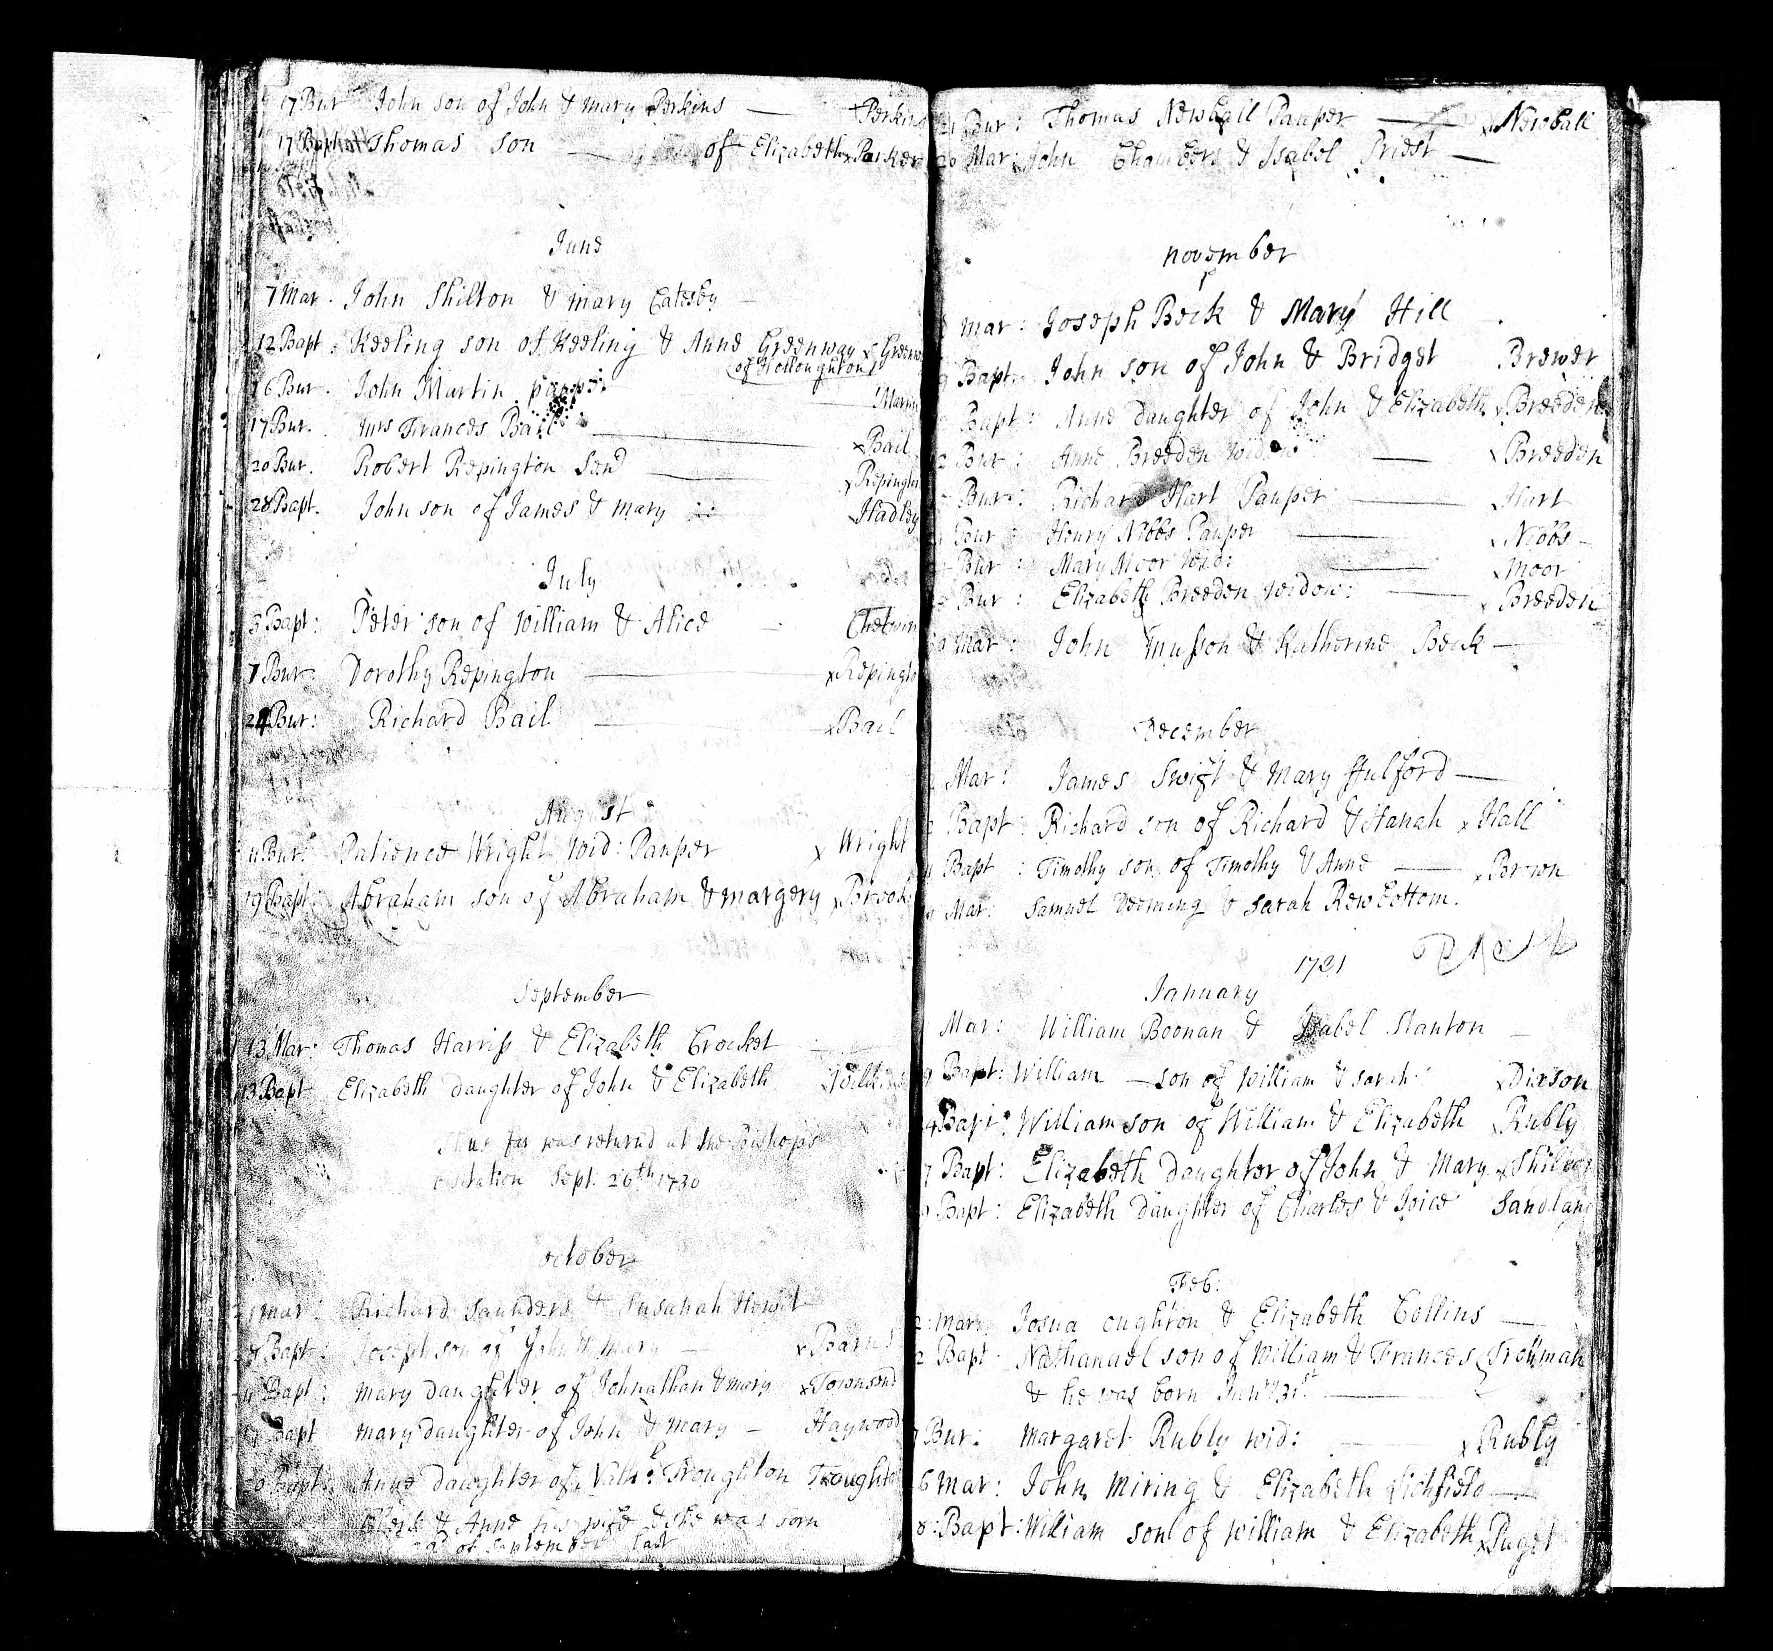 17 Bur John son of John & Mary Perkins — Perkins
17 Bapt Thomas son — of Elizabeth Parker
June
7 Mar. John Shilton & Mary Catesby —
12 Bapt: Keeling son of Keeling & Anne Greenway
of Holloughton
16 Bur. John Martin pauper —
17 Bur. Mrs Frances Bail — Bail
20 Bur. Robert Repington — Repington
28 Bapt. John son of James & Mary Hadley
July
3 Bapt: Peter son of William & Alice —
7 Bur: Dorothy Repington — Repington
24 Bur: Richard Bail — Bail
August
11 Bur: Patience Wright Wid: Pauper x Wright
19 Bapt: Abraham son of Abraham & Margery x
September
13 Mar: Thomas Harriss & Elizabeth Crocket
13 Bapt Elizabeth Daughter of John & Elizabeth
Thus far was returnd at the Bishops
visitation Sept. 26th 1730
October
Mar: Richard Saunders & Susanah
Bapt: Joseph son of John & Mary — x
Bapt: Mary Daughter of Johnathan & Mary x Townsend
Bapt Mary Daughter of John & Mary — Haywood
Bapt: Anne Daughter of Troughton
Clerk & Anne his wife & she was born
of September last
21 Bur: Thomas Newball Pauper — x Newball
Mar: John Chambers & Isabel Priest —
November
Mar: Joseph Beck & Mary Hill
Bapt: John son of John & Bridget Brewer
Bapt: Anne Daughter of John & Elizabeth x Breeden
Bur: Anne Breeden — x Breeden
Bur: Richard Hart Pauper — x Hart
Bur: Henry Nibbs Pauper — x Nibbs —
Bur: Mary Moor Wid: — x Moor
Bur: Elizabeth Breeden Widow: — x Breeden
Mar: John Musson & Katherine Beck —
December
Mar: James Swift & Mary Hulford —
Bapt: Richard son of Richard & Hanah x Hall
Bapt: Timothy son of Timothy & Anne — x Brown
Mar: Samuel Deeming & Sarah Rewbottom.
January
Mar: William Boonan & Isabel Stanton —
Bapt: William — son of William & Sarah x Dixson
Bapt: William son of William & Elizabeth x Rubly
Bapt: Elizabeth Daughter of John & Mary x
Bapt: Elizabeth Daughter of Charles & Joice
Feb:
2: Mar: Josua Oughton & Elizabeth Collins —
2 Bapt. Nathanael son of William & Frances
& he was born —
Bur: Margaret Rubly wid: — x Rubly
6 Mar: John Miring & Elizabeth Lichfield —
8: Bapt: William son of William & Elizabeth x Puget